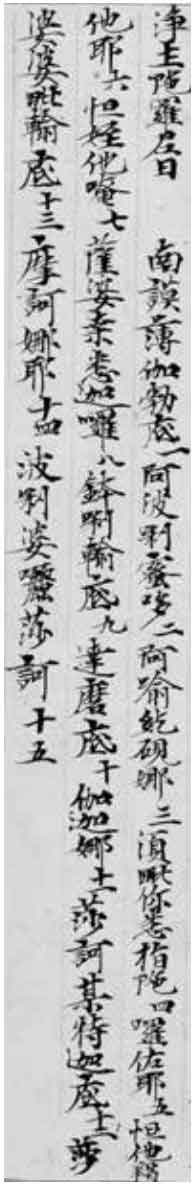 淨王陁羅尼曰 南謨薄伽勃底一阿波唎蜜哆二阿喻紇硯娜三須毗你悉指陁四囉佐耶五怛他羯
他耶六怛姪他唵七薩婆桒悉迦囉八鉢唎輸底九達磨底十伽迦娜十一莎訶某特迦底十二莎
婆婆毗輸底十三摩訶娜耶十四波唎婆囇莎訶十五